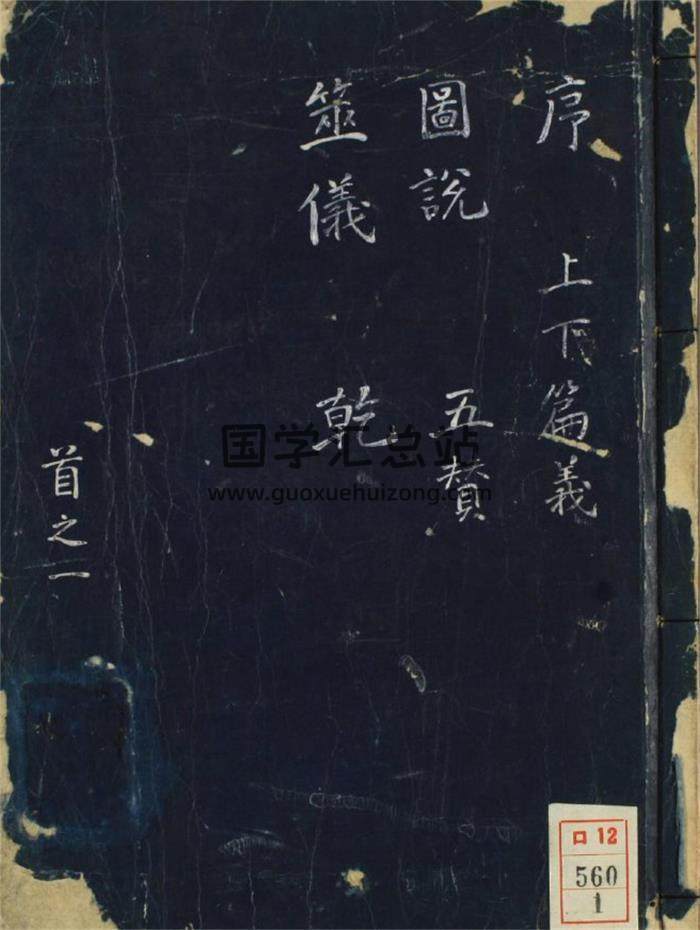 序 上下篇義
圖說 五贊
筮儀 乾
首之一
国学汇总站
www.guoxuehuizong.com
ロ 12
560
1